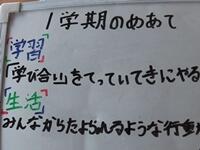 1学期のめあて
学習
「学び合い」をてっていてきにやる
生活
みんなからたよられるような行動